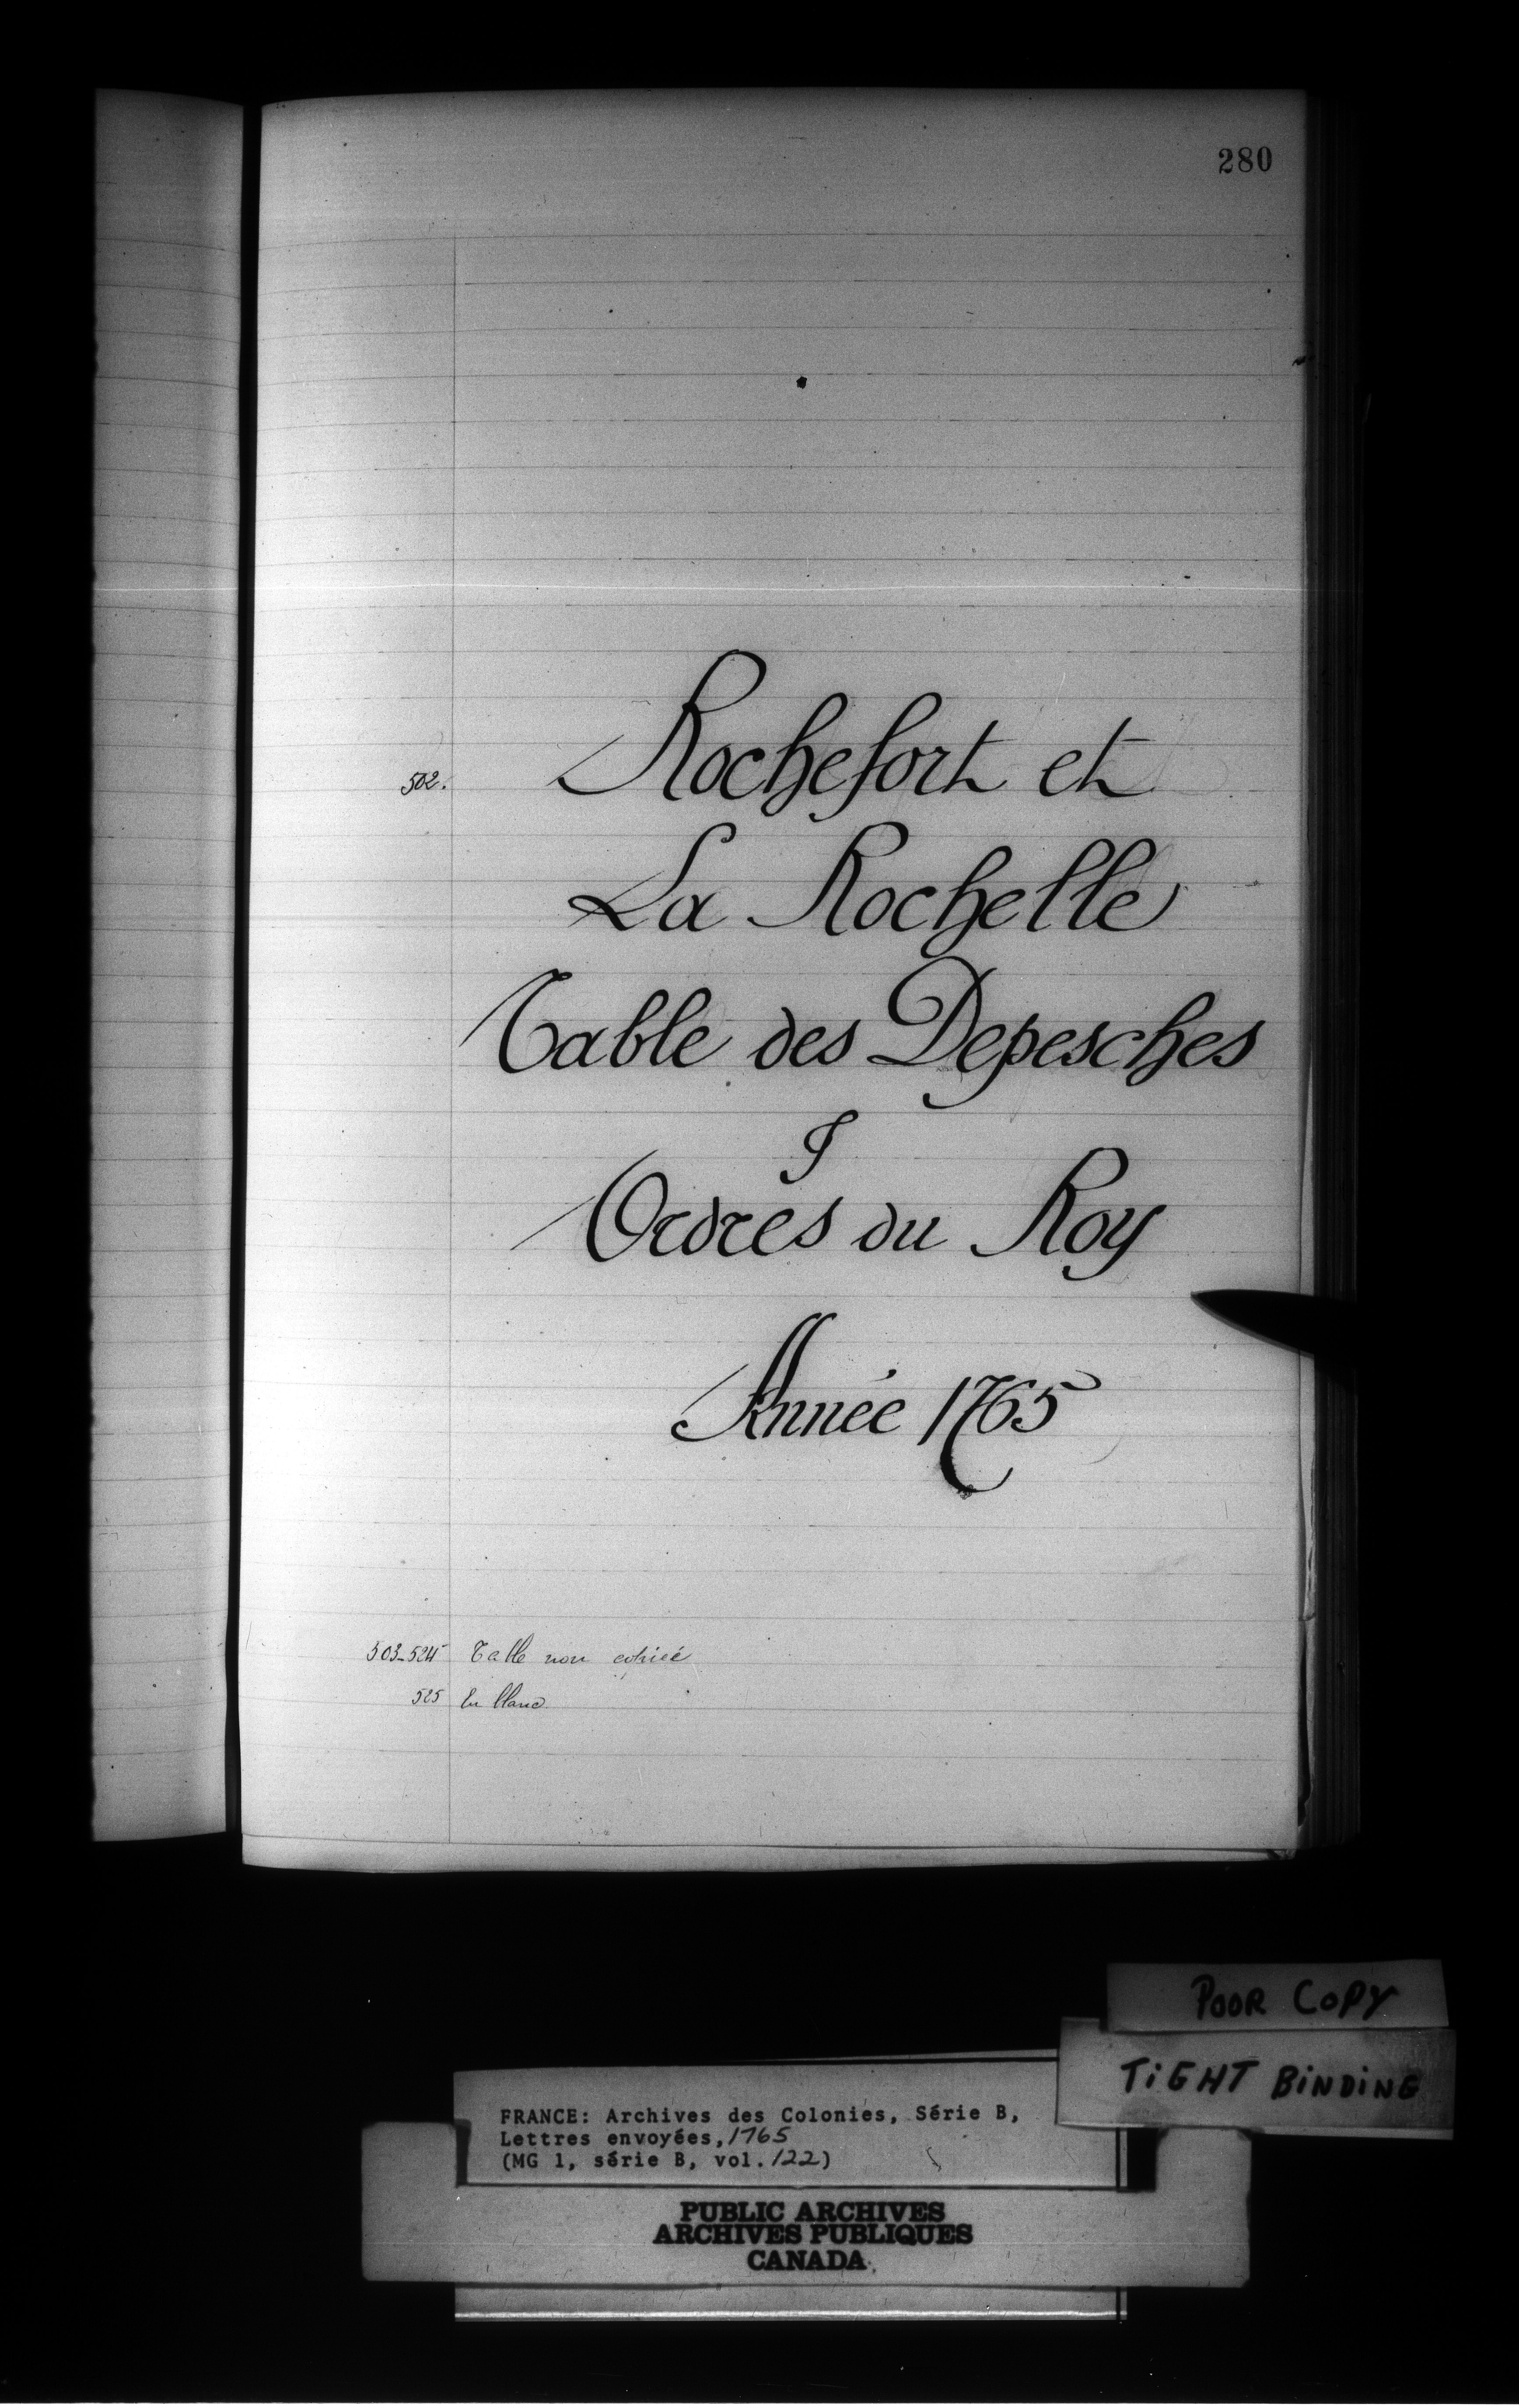 280
502. Rochefort et
La Rochelle
Table des Depesches
&
Ordres du Roy
Année 1765
503-524 Table non copiée
525 En blanc
POOR COPY
TIGHT BINDING
FRANCE: Archives des Colonies, Série B,
Lettres envoyées, 1765
(MG 1, série B, vol. 122)
PUBLIC ARCHIVES
ARCHIVES PUBLIQUES
CANADA